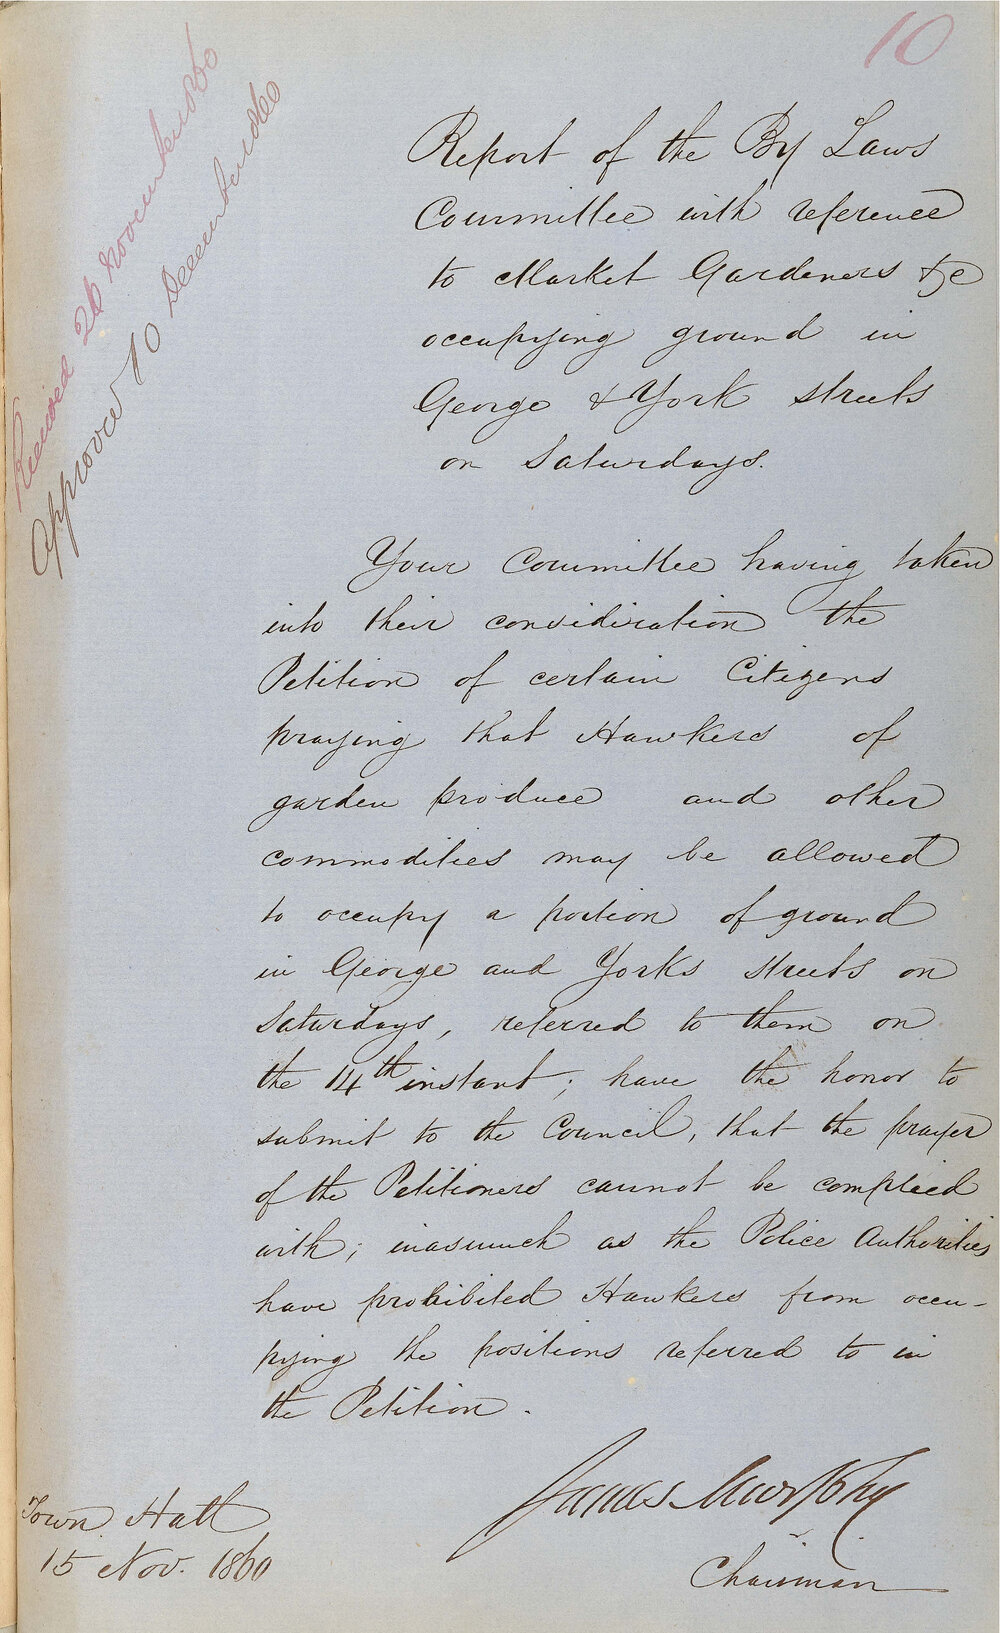 10
Received 26 November/60
Approved 10 December/60
Report of the By Laws
Committee with reference
to Market Gardeners &c
occupying ground in
George & York streets
on Saturdays.
Your Committee having taken
into their consideration the
Petition of certain Citizens
praying that Hawkers of
garden produce and other
commodities may be allowed
to occupy a portion of ground
in George and Yorks streets on
Saturdays, referred to them on
the 14th instant; have the honor to
submit to the Council, that the prayer
of the Petitioners cannot be complied
with; inasmuch as the Police Authorities
have prohibited Hawkers from occu-
pying the positions referred to in
the Petition.
James Murphy
Chairman
Town Hall
15 Nov. 1860